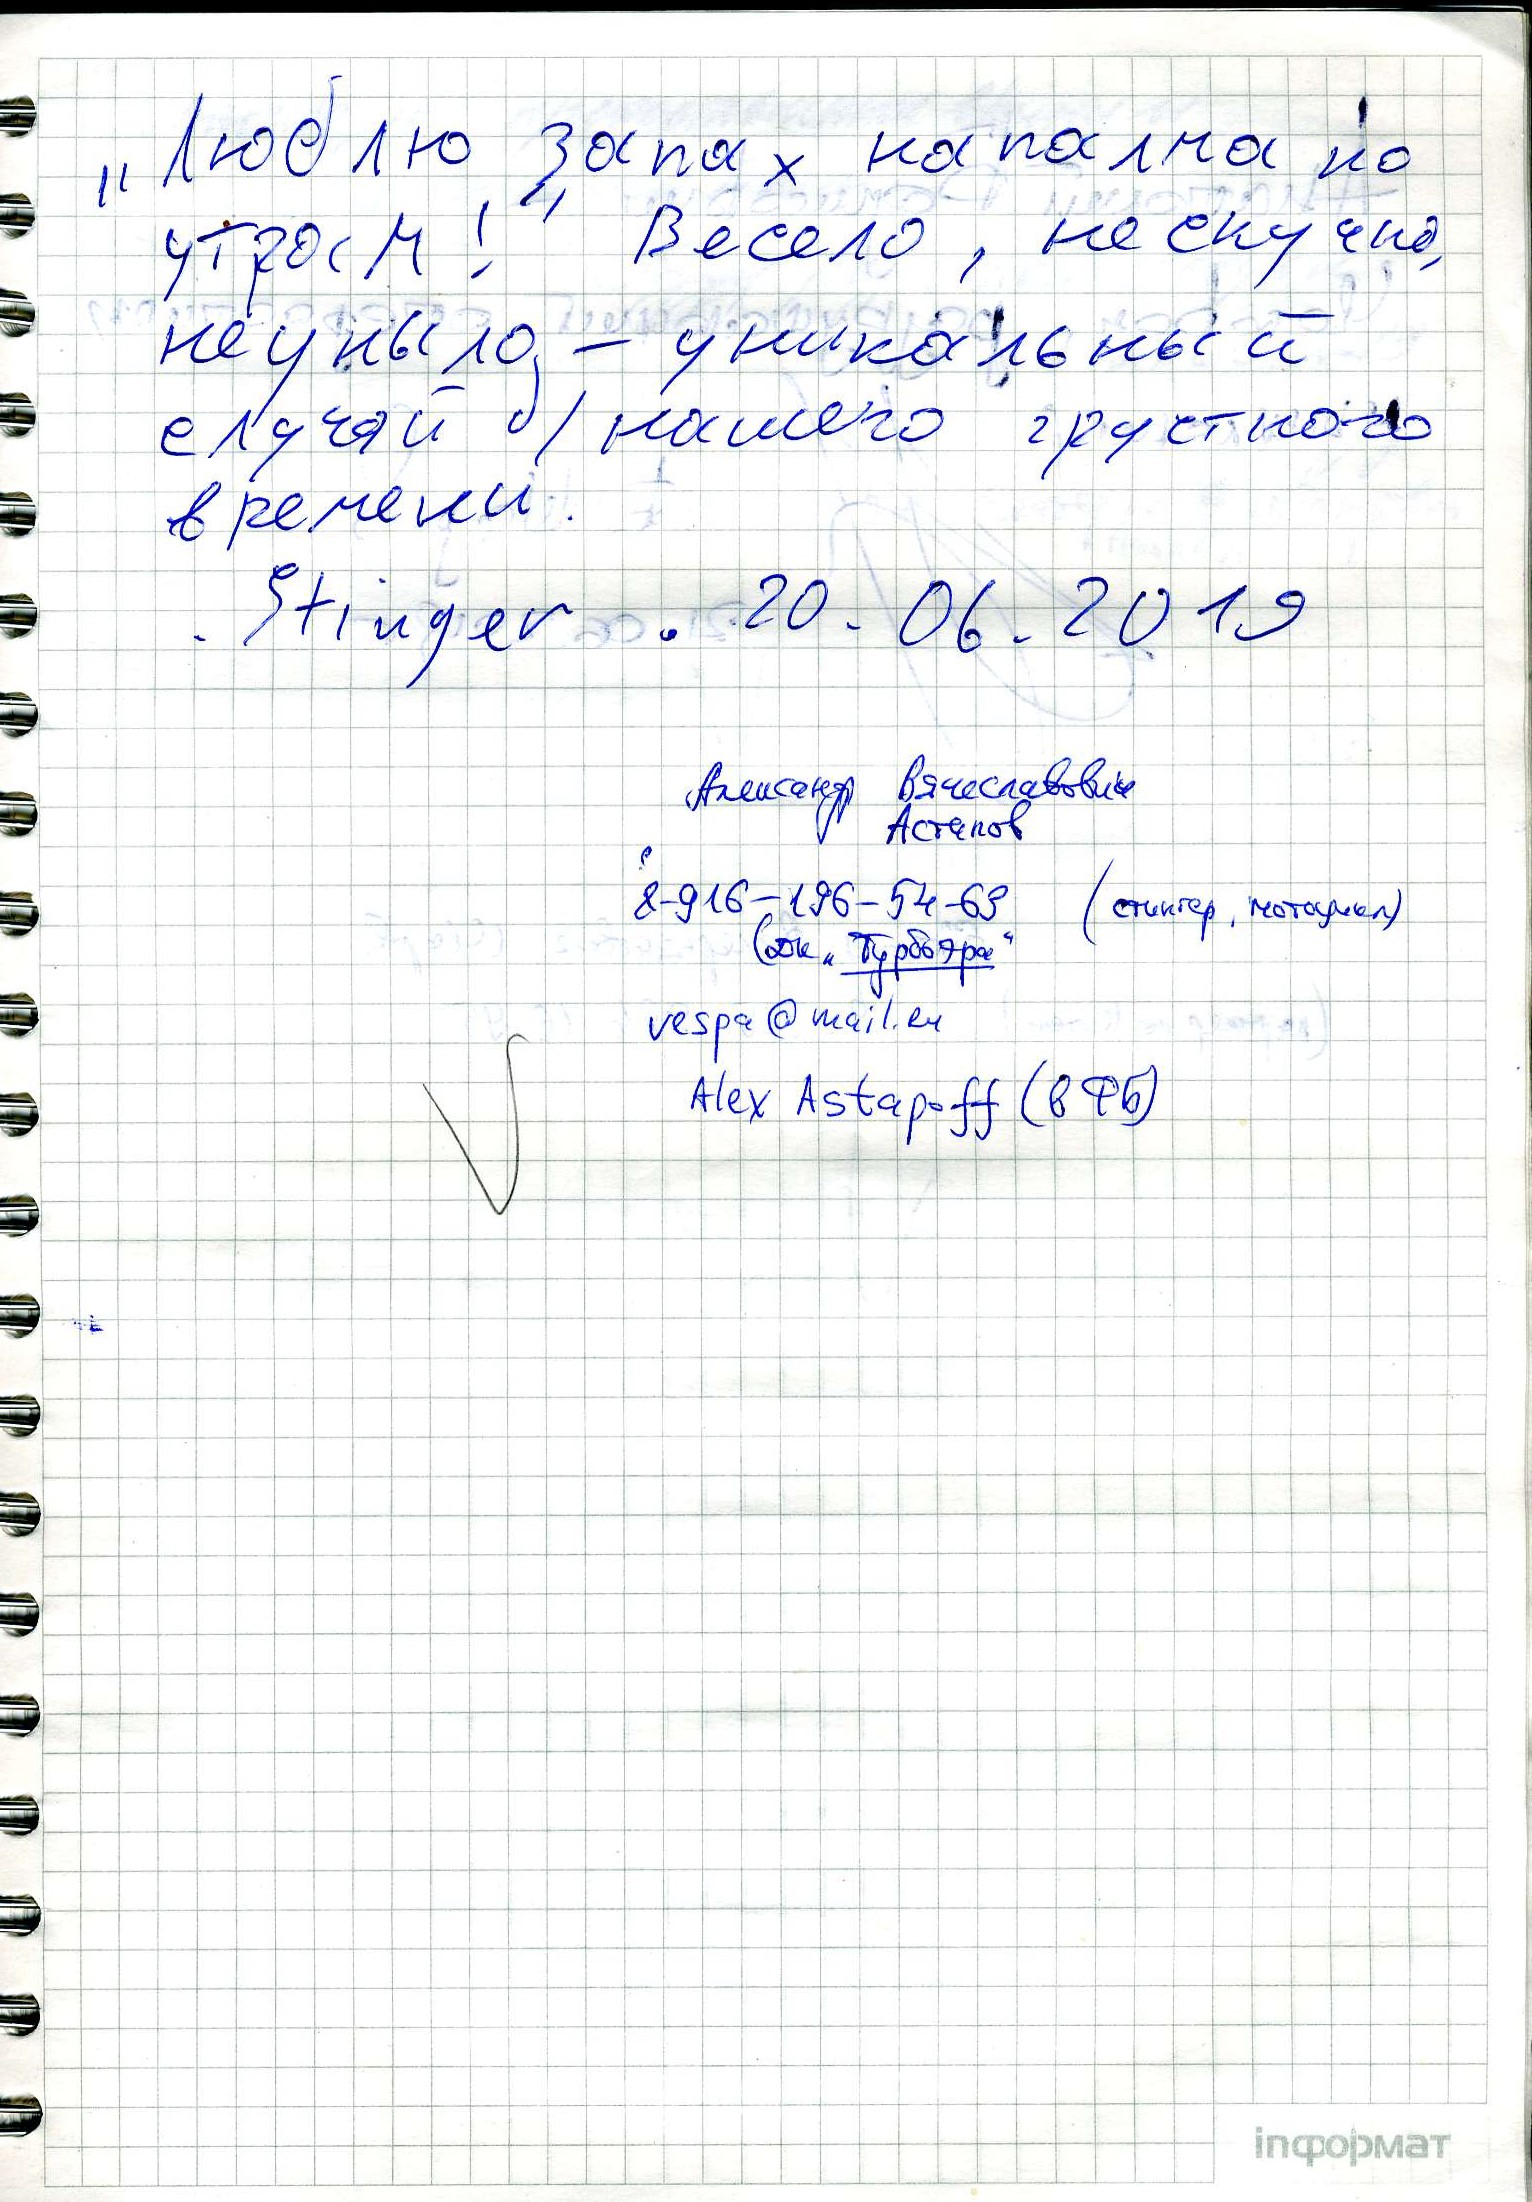 „Люблю запах напалма по
утрам!" Весело, нескучно,
неуныло, – уникальный
случай д/нашего грустного
времени.
Stinger. 20.06.2019
Александр Вячеславович
Астапов
8-916-196-54-63 (стингер, мотоциклы)
(ДК „Турбьяра"
vespa@mail.ru
Alex Astapoff (в ФБ)
inформат